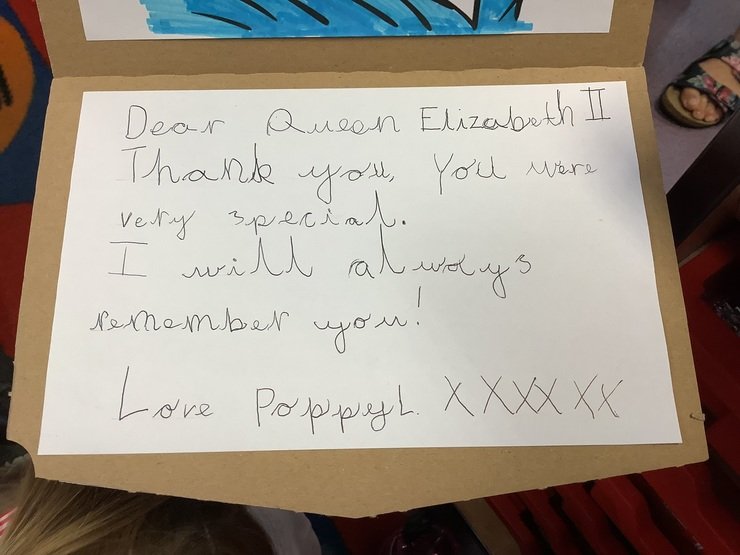 Dear Queen Elizabeth II
Thank you, You were
very special.
I will always
remember you!
Love Poppy L. X X X X X X